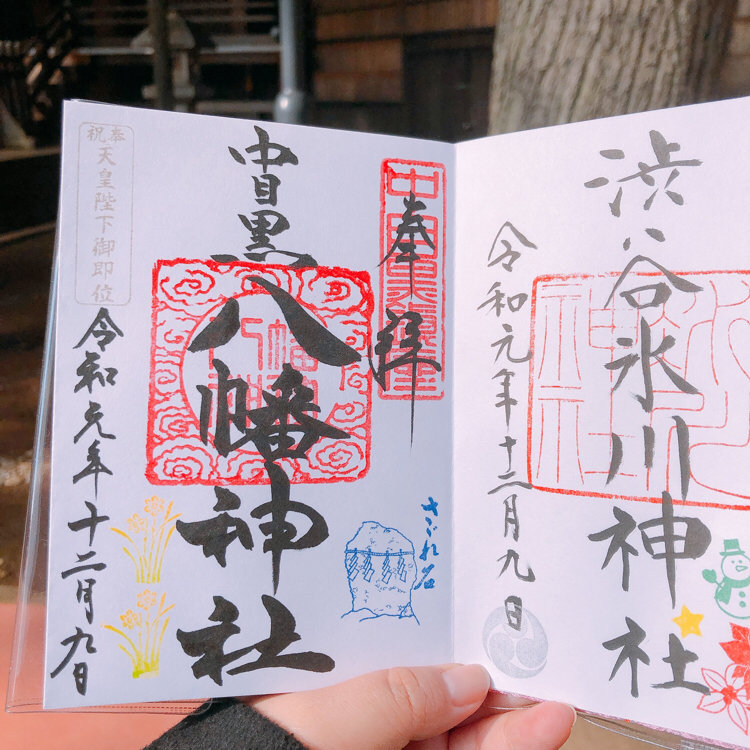 渋谷氷川神社
令和元年十二月九日
奉拝
中目黒八幡神社
さざれ石
奉祝
天皇陛下御即位
令和元年十二月九日